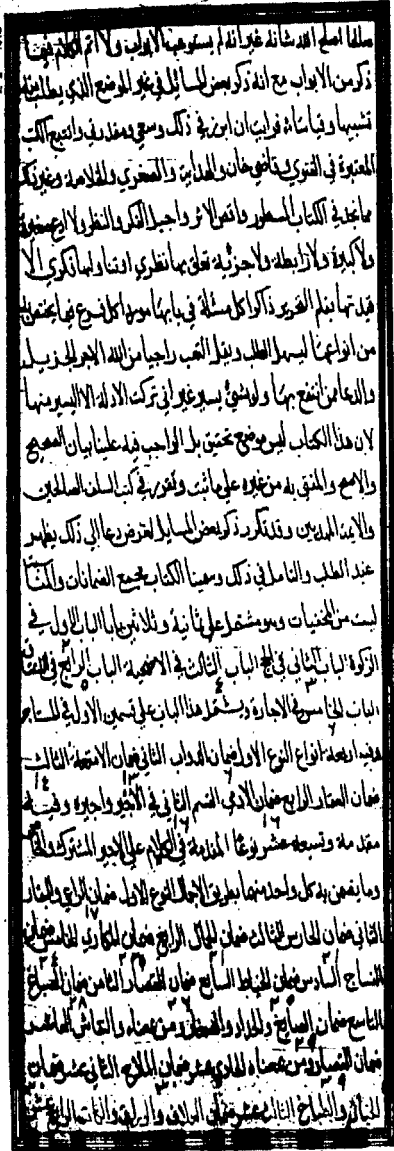 سلفا اصلح الله شانه غير انه لم يستوعب الابواب ولا اتم الكلام فيما
ذكر من الابواب مع انه ذكر بعض المسائل في غير الموضع الذي يطلب فيه
تشبيها وقياسا فرايت ان ابذل في ذلك وسعي ومقدرتي واتتبع الكتب
المعتبرة في الفتوى كقاضي خان والهداية والصغرى والخلاصة وغير ذلك
مما نجد في الكتاب المسطور واقص الاثر واجيد الفكر والنظر ولا ادع صغيرة
ولا كبيرة ولا رابطة ولا جزئية تعلق بها نظري اذ تناولها فكري الا
قيدتها بقلم التحرير ذاكرا كل مسئلة في بابها موردا كل فرع فيما يختص به
من انواعها ليسهل الطلب ويقل التعب راجيا من الله الاجر الجزيل
والدعا ممن انتفع بها ولو بشئ يسير غير اني تركت الادلة الا اليسير منها
لان هذا الكتاب ليس موضع تحقيق بل الواجب فيه علينا بيان الصحيح
والاصح والمفتى به من غيره على ما ثبت وتقرر في كتب السلف الصالحين
والايمة المهديين وقد تكرر ذكر بعض المسايل لغرض دعا الى ذلك يظهر
عند الطلب والتامل في ذلك وسمينا الكتاب بمجمع الضمانات والكتاب
ليست من المخفيات وهو مشتمل على ثمانية وثلاثين بابا الباب الاول في
الزكوة الباب الثاني في الحج الباب الثالث في الاضحية الباب الرابع في العتق
الباب الخامس في الاجارة ويشتمل هذا الباب على قسمين الاول في المستاجر
وفيه اربعة انواع النوع الاول ضمان الدواب الثاني ضمان الامتعة الثالث
ضمان العقار الرابع ضمان الادمي القسم الثاني في الاجير واجيره وفيه
مقدمة وتسعة عشر نوعا المقدمة في الكلام على الاجير المشترك والخاص
وما يضمن به كل واحد منهما بطريق الاجمال النوع الاول ضمان الراعي والبقار
الثاني ضمان الحارس الثالث ضمان الحمال الرابع ضمان المكاري الخامس ضمان
النساج السادس ضمان الخياط السابع ضمان القصار الثامن ضمان الصباغ
التاسع ضمان الصايغ والحداد والصفار ومن بمعناه والنقاش العاشر
ضمان الفصاد ومن بمعناه الحادي عشر ضمان الملاح الثاني عشر ضمان
الخباز والطباخ الثالث عشر ضمان الغلاف والوراق والكاتب الرابع عشر